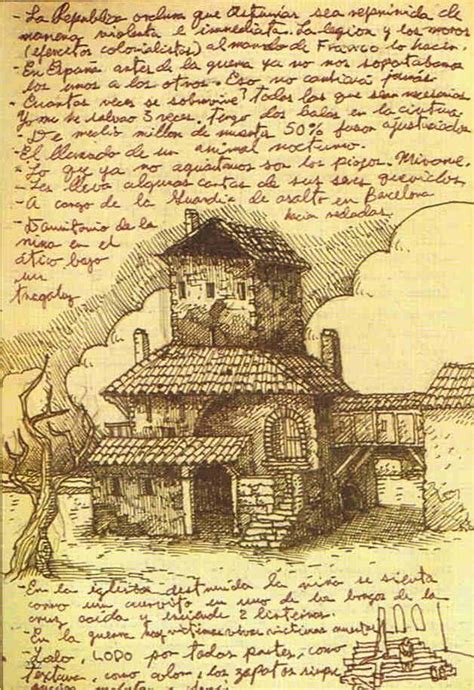 - La República ordena que Asturias sea reprimida de
manera violenta e inmediata. La legion y los moros
(ejercitos colonialistas) al mando de Franco lo hacen.
- En España antes de la guerra ya no nos soportabamos
los unos a los otros. Eso no cambiará jamás
- Cuantas veces se sobrevive? todas las que sean necesarias
Yo me salvao 3 veces. Tengo dos balas en la cintura
- De medio millon de muertos 50% fueron ajusticiados
- El llamado de un animal nocturno.
- Lo que ya no aguantamos son los piojos. Mirame.
- Les lleva algunas cartas de sus seres queridos
- A cargo de la Guardia de asalto en Barcelona
hacian redadas.
- Dormitorio de la
niña en el
ático bajo
un
tragaluz
- En la iglesia destruida la niña se sienta
como un cuervito en uno de los brazos de la
cruz caida y enciende 2 linternas.
- En la guerra hay victimas vivas victimas muertas
- Lodo, LODO por todas partes, como
textura, como color, los zapatos siempre